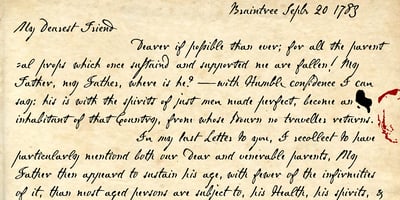 Braintree Sepbr 20 1783
My Dearest Friend
Dearer if possible than ever; for all the parent
eal props which once sustaind and supported me are fallen! My
Father, my Father, where is he? — with Humble confidence I can
say: his is with the spirits of just men made perfect, become an
inhabitant of that Country, from whose Bourn no traveller returns.
In my last Letter to you, I recollect to have
particularly mentiond both our Dear and venerable parents, My
Father then appeard to sustain his age, with fewer of the infirmities
of it, than most aged persons are subject to, his Health, his spirits, &